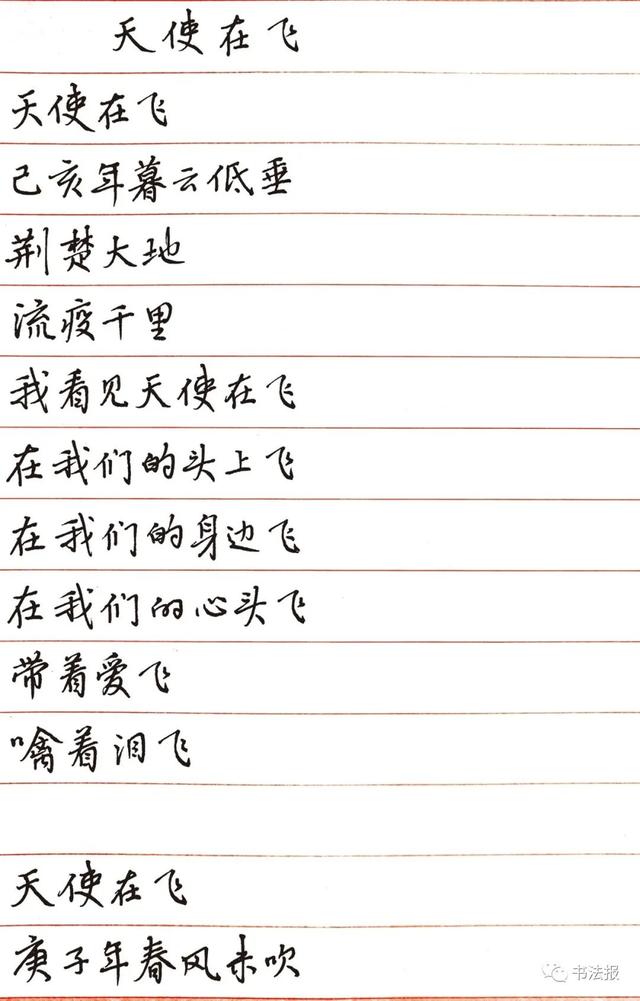 天使在飞
天使在飞
己亥年暮云低垂
荆楚大地
流疫千里
我看见天使在飞
在我们的头上飞
在我们的身边飞
在我们的心头飞
带着爱飞
噙着泪飞
天使在飞
庚子年春风未吹
书法报